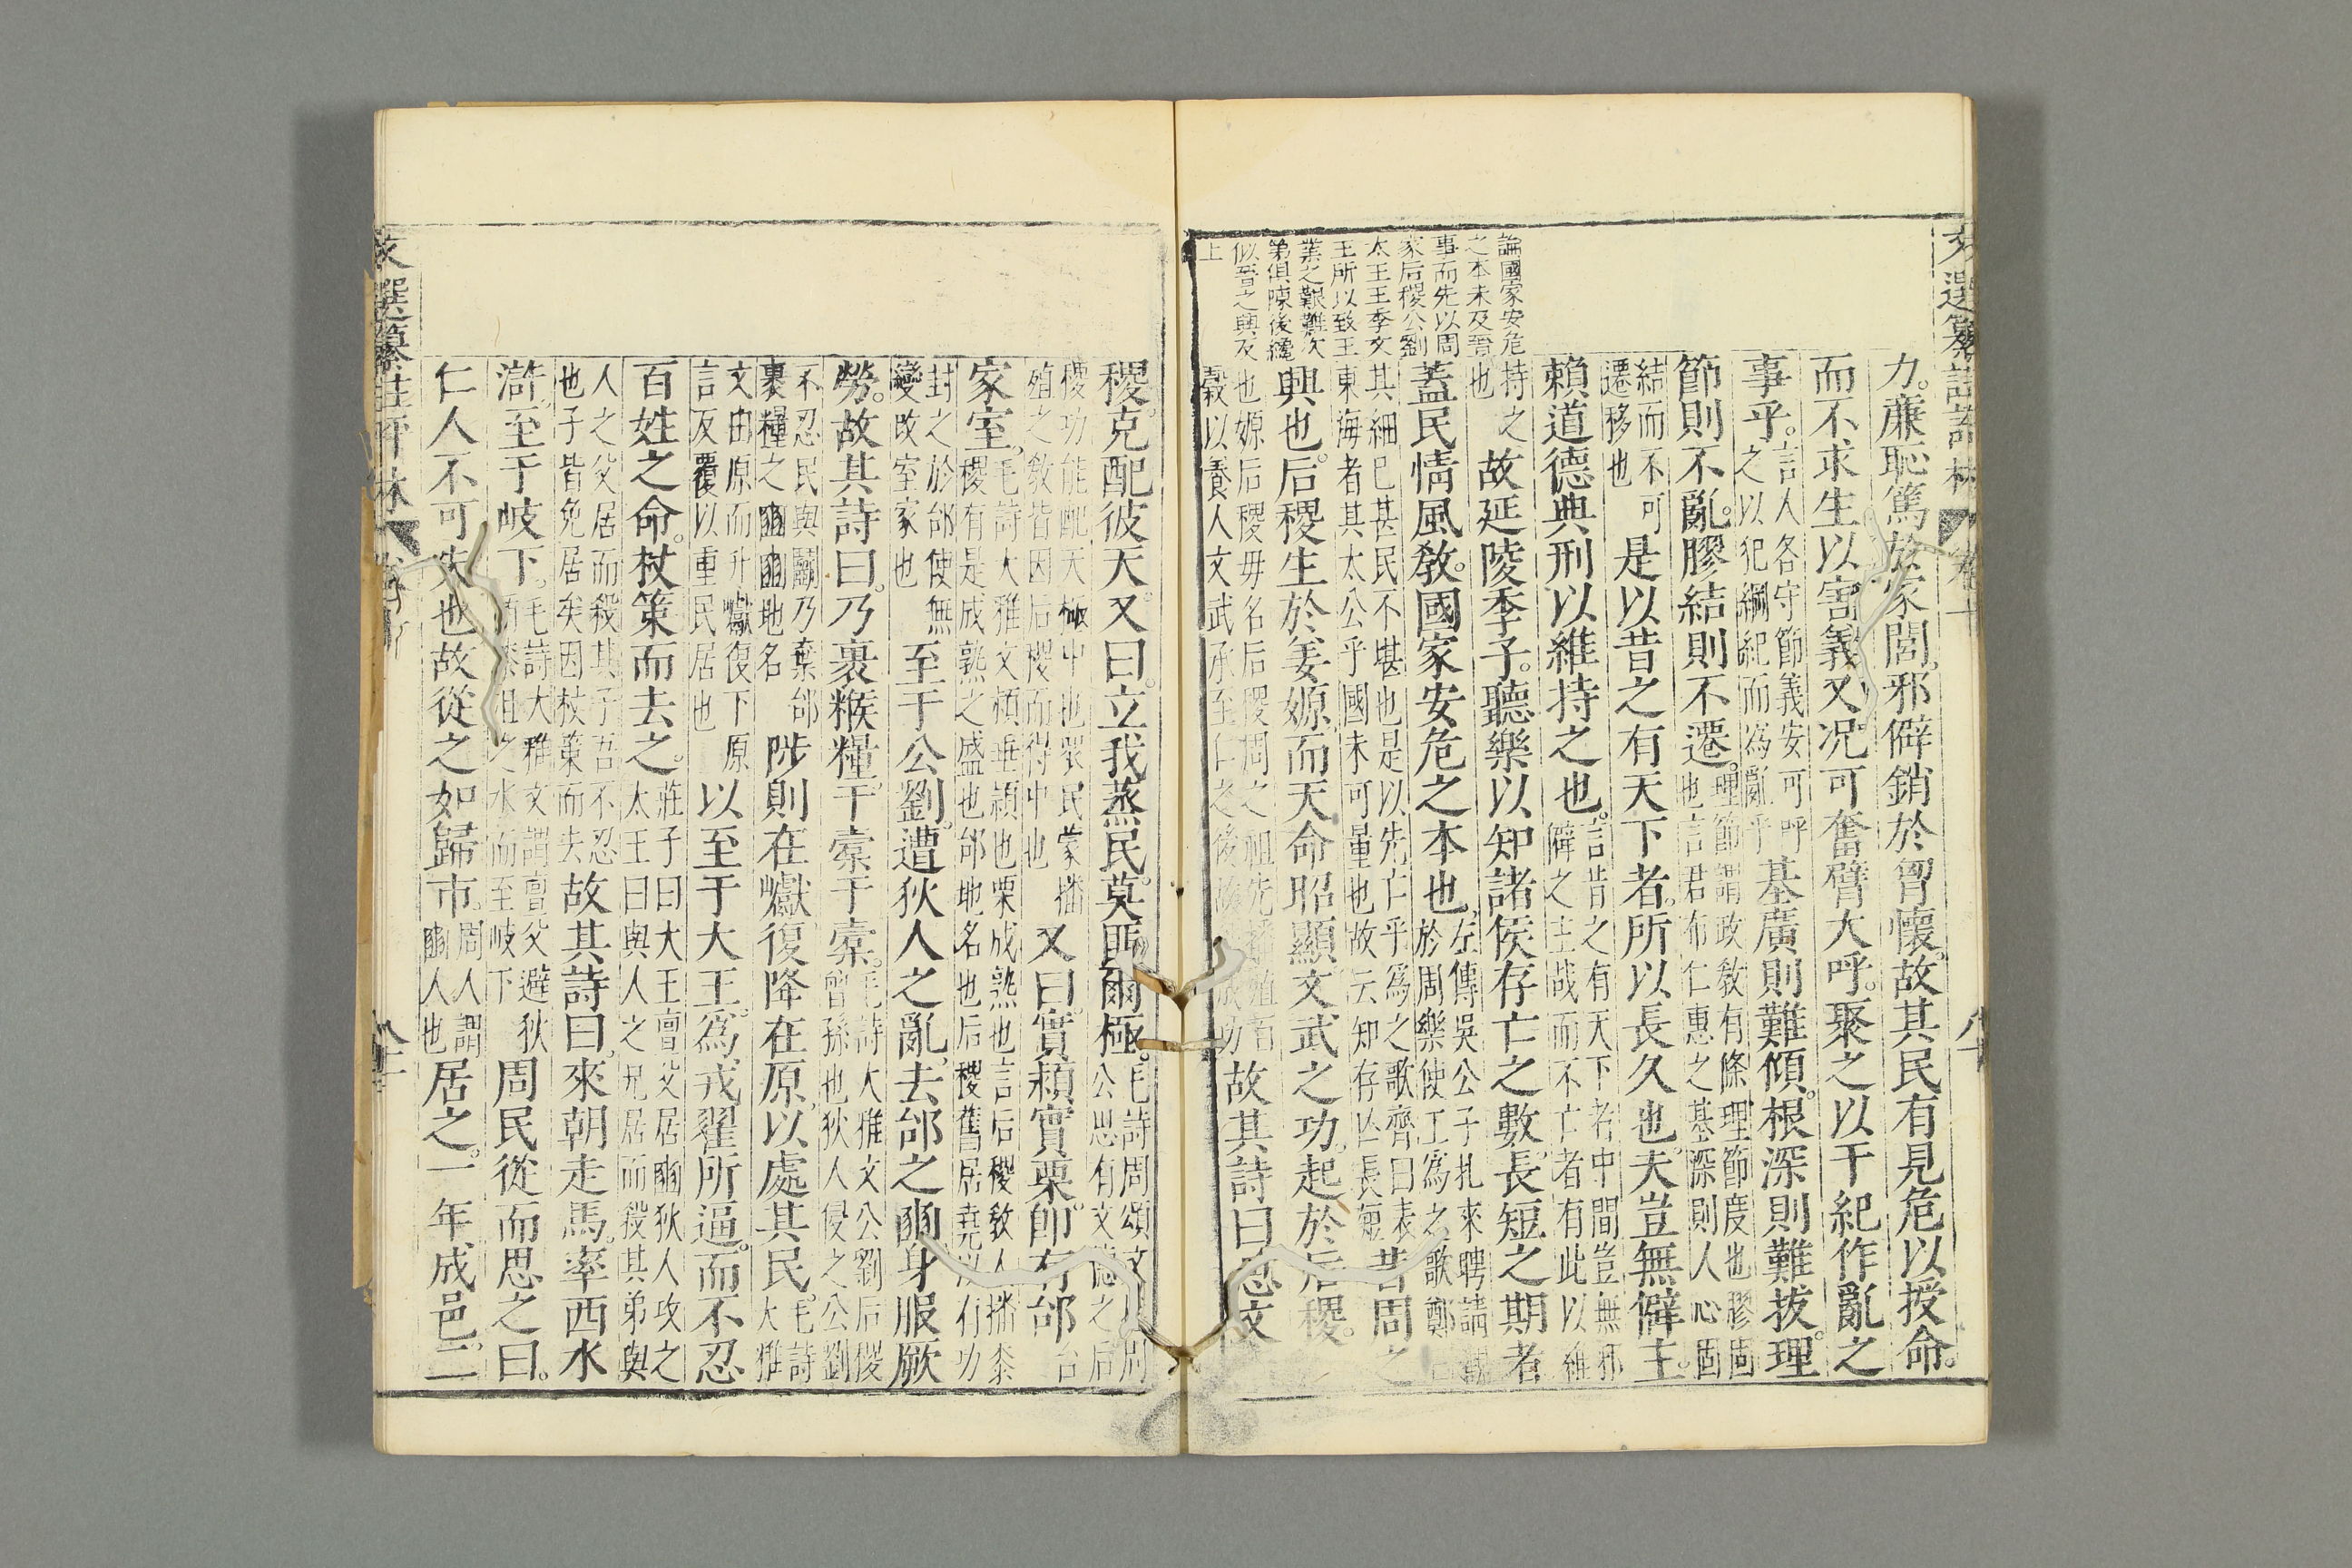 力。廉恥篤於家閭，邪僻銷於胷懷。故其民有見危以授命。
而不求生以害義。又况可奮臂大呼。聚之以干紀作亂之
事乎。言人各守節義安可呼
之以犯綱紀而為亂乎基廣則難傾。根深則難拔。理
節則不亂。膠結則不遷。理節謂政敎有條理節度也膠固
也言君布仁惠之基深則人心固
結而不可
遷移也是以昔之有天下者。所以長久也。夫豈無僻主。
賴道德典刑以維持之也。言昔之有天下者中間豈無邪
僻之主哉而不亡者有此以維
持之
也故延陵季子。聽樂以知諸侯存亡之數。長短之期者
蓋民情風敎。國家安危之本也，左傳吳公子札來聘請觀
於周樂使工為之歌鄭曰
其細已甚民不堪也是以先亡乎為之歌齊曰表
東海者其太公乎國未可量也故云知存亡長短昔周之
興也。后稷生於姜嫄，而天命昭顯，文武之功。起於后稷。
也嫄后稷毋名后稷周之祖先播殖百
穀以養人文武承至仁之後成功故其詩曰思文
論國家安危
之本未及晉
事而先以周
家后稷公劉
太王王季文
王所以致王
業之艱難次
第俱陳後纔
似晋之興及
上
稷。克配彼天。又曰。立我蒸民。莫匪爾極。毛詩周頌文
公思有文德之后
稷功能配天極中也衆民蒙播
殖之敎皆因后稷而得中也又曰。實穎實栗。卽有邰
家室。毛詩大雅文穎垂穎也栗成熟也言后稷敎人播黍
稷有是成熟之盛也邰地名也后稷舊居堯以有功
封之於邰使無
變改室家也至于公劉。遭狄人之亂，去邰之豳，身服厥
勞。故其詩曰。乃裹糇糧。于橐于囊。毛詩大雅文公劉后稷
曾孫也狄人侵之公劉
不忍民與鬭乃棄邰
裹糧之豳豳地名陟則在巘，復降在原，以處其民。毛詩
大雅
文由原而升巘復下原
言反覆以重民居也以至于大王。爲戎翟所逼。而不忍
百姓之命。杖策而去之。莊子曰大王亶父居豳狄人攻之
太王曰與人之兄居而殺其弟與
人之父居而殺其子吾不忍
也子皆免居矣因杖策而去故其詩曰，來朝走馬。率西水
滸，至于岐下。毛詩大雅文謂亶父避狄
循漆沮之水而至岐下周民從而思之曰。
仁人不可失也故從之如歸市。周人謂
豳人也居之。一年成邑，二
文選纂註評林
八十